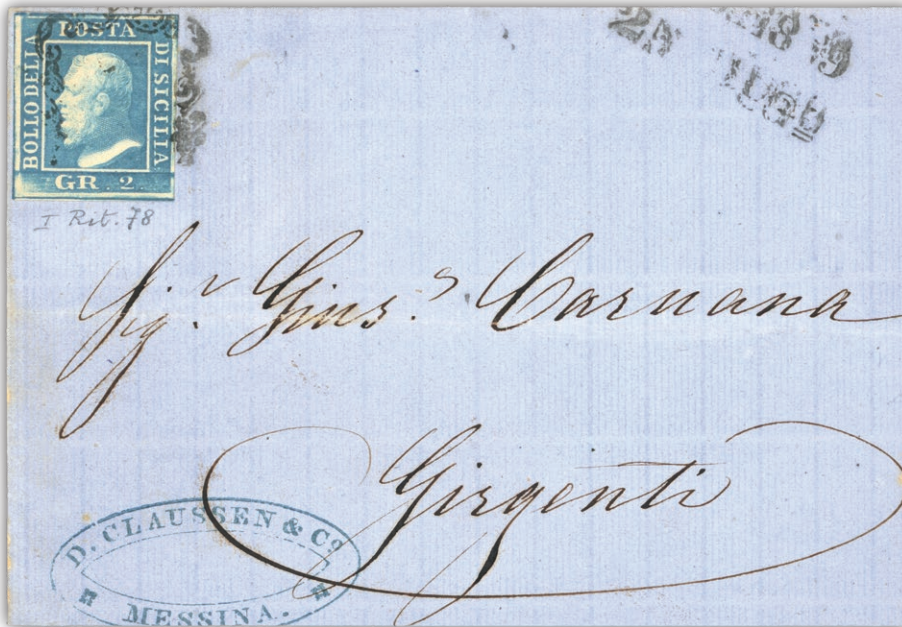 BOLLO DELLA
POSTA
DI SICILIA
GR. 2.
I Rit. 78
Sig.r Gius.e Caruana
Girgenti
D. CLAUSSEN & Co.
MESSINA.